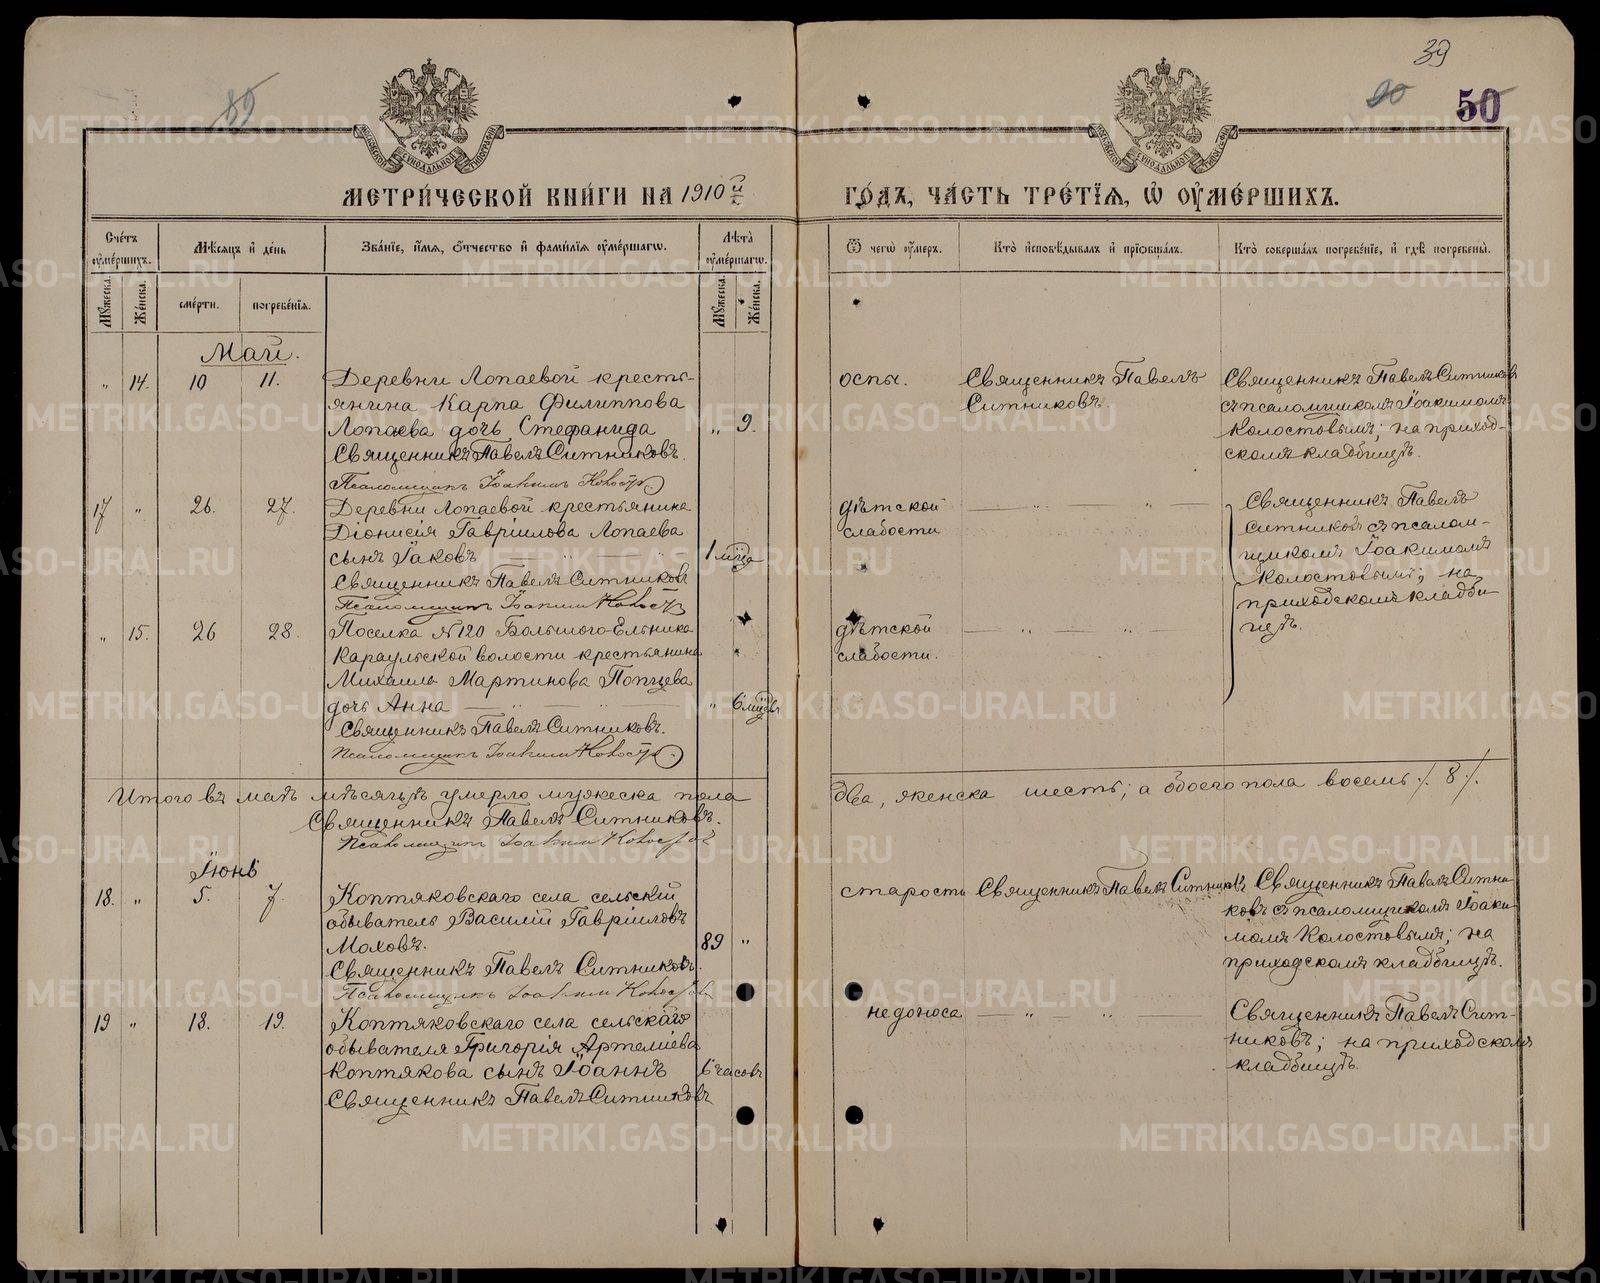 89
39
90
50
МЕТРИ́ЧЕСКОЙ КНИ́ГИ НА 1910 й
ГО́ДЪ, ЧА́СТЬ ТРЕ́ТІЯ, Ѡ҆ ОУ҆МЕ́РШИХЪ.
Сче́тъ оу҆ме́ршихъ.
Мѣ́сяцъ и҆ де́нь
Зва́нїе, и҆́мя, ѻ҆́тчество и҆ фами́лїя оу҆ме́ршагѡ.
Лѣ́та оу҆ме́ршагѡ.
Ѿ чегѡ̀ оу҆́меръ.
Кто̀ и҆сповѣ́дывалъ и҆ прїѡбща́лъ.
Кто̀ соверша́лъ погребе́нїе, и҆ гдѣ̀ погребены̀.
Му́жеска.
Же́нска.
сме́рти.
погребе́нїя.
Му́жеска.
Же́нска.
Май.
" 14. 10 11.
Деревни Лопаевой кресть-
янина Карпа Филиппова
Лопаева дочь Стефанида
" 9.
Священникъ Павелъ Ситниковъ.
Псаломщикъ Іоакимъ
оспы.
Священникъ Павелъ
Ситниковъ.
Священникъ Павелъ Ситниковъ
съ псаломщикомъ Іоакимомъ
Колостовымъ; на приход-
скомъ кладбищѣ.
17 " 26. 27.
Деревни Лопаевой крестьянина
Діонисія Гавріилова Лопаева
сынъ Іаковъ
1 мѣца
Священникъ Павелъ Ситниковъ
Псаломщикъ Іоакимъ
дѣтской
слабости
Священникъ Павелъ
Ситниковъ съ псалом-
щикомъ Іоакимомъ
Колостовымъ; на
приходскомъ кладби-
щѣ.
" 15. 26 28.
Поселка №120 Большого-Ельника
Караульской волости крестьянина
Михаила Мартинова Попцева
дочь Анна
" 6 мѣцевъ
Священникъ Павелъ Ситниковъ.
Псаломщикъ Іоакимъ
дѣтской
слабости.
Итого въ маѣ мѣсяцѣ умерло мужеска пола
два, женска шесть; а обоего пола восемь ./. 8 ./.
Священникъ Павелъ Ситниковъ.
Псаломщикъ Іоакимъ
Іюнь
18. " 5. 7.
Коптяковскаго села сельскій
обыватель Василій Гавріиловъ
Моховъ.
89 "
Священникъ Павелъ Ситниковъ.
Псаломщикъ Іоакимъ
старость
Священникъ Павелъ Ситниковъ
Священникъ Павелъ Ситни-
ковъ съ псаломщикомъ Іоаки-
момъ Колостовымъ; на
приходскомъ кладбищѣ.
19 " 18. 19.
Коптяковскаго села сельскаго
обывателя Григорія Артеміева
Коптякова сынъ Іоаннъ
6 часовъ
Священникъ Павелъ Ситниковъ
недоноса
Священникъ Павелъ Сит-
никовъ; на приходскомъ
кладбищѣ.
METRIKI.GASO-URAL.RU